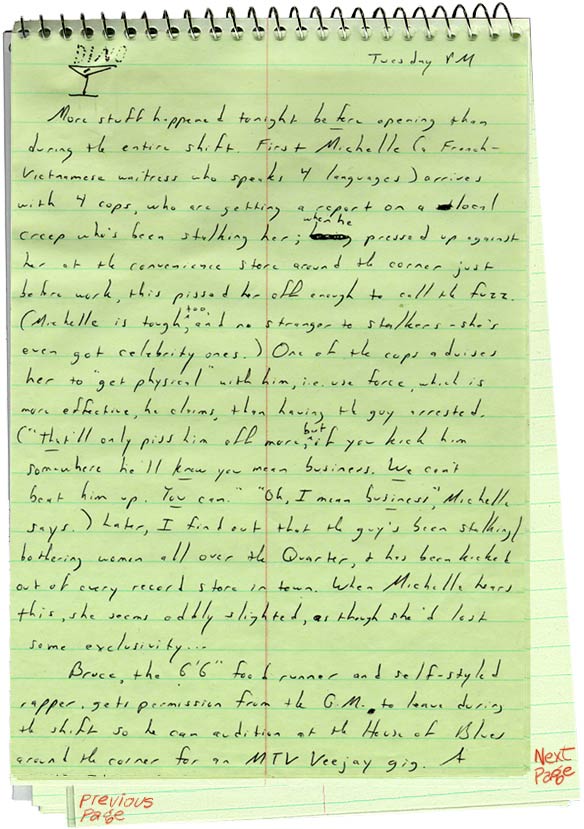 DINO
Tuesday PM
More stuff happened tonight before opening than
during the entire shift. First Michelle (a French-
Vietnamese waitress who speaks 4 languages) arrives
with 4 cops, who are getting a report on a local
creep who's been stalking her; when he pressed up against
her at the convenience store around the corner just
before work, this pissed her off enough to call the fuzz.
(Michelle is tough, too, and no stranger to stalkers - she's
even got celebrity ones.) One of the cops advises
her to "get physical" with him, i.e. use force, which is
more effective, he claims, than having the guy arrested.
("That'll only piss him off more, but if you kick him
somewhere he'll know you mean business. We can't
beat him up. You can." "Oh, I mean business", Michelle
says.) Later, I find out that the guy's been stalking/
bothering women all over the Quarter, & has been kicked
out of every record store in town. When Michelle hears
this, she seems oddly slighted, as though she'd lost
some exclusivity...
Bruce, the 6'6" food runner and self-styled
rapper, gets permission from the G.M. to leave during
the shift so he can audition at the House of Blues
around the corner for an MTV Veejay gig. A
Next
Page
Previous
Page